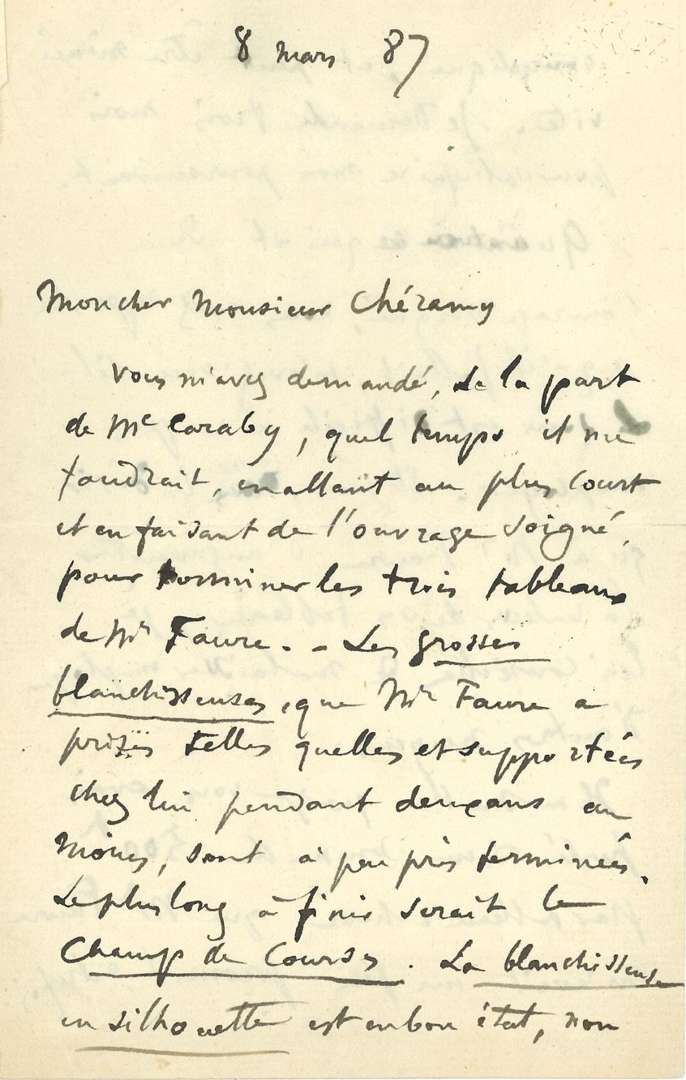 8 mars 87
Mon cher Monsieur Chéramy
Vous m'avez demandé, de la part
de Me Caraby, quel temps il me
faudrait, en allant au plus court
et en faisant de l'ouvrage soigné,
pour terminer les trois tableaux
de Mr Faure. - Les grosses
blanchisseuses, que Mr Faure a
prises telles quelles et supportées
chez lui pendant deux ans au
moins, sont à peu près terminées.
Le plus long à finir serait le
Champ de Courses. La blanchisseuse
en silhouette est en bon état, non